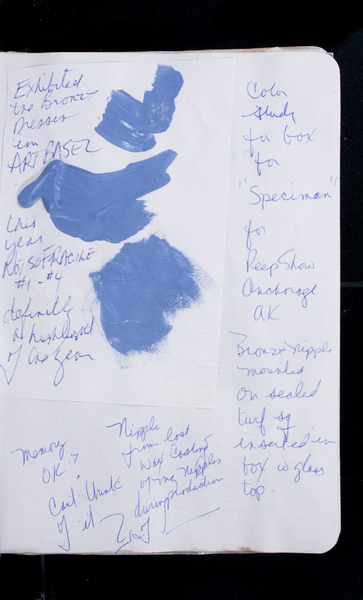 Exhibited
the Bronze
Dresses
in
ART BASEL
this
year
NOT SO FRAGILE
#1 - #4
definitely
a highlight
of the year
Color
study
for box
for
"Specimen"
for
PeepShow
Anchorage
AK
Bronze Nipple
mounted
on sealed
turf sq
inserted in
box w glass
top.
Memory
OK?
Can't think
of it
Nipple
from lost
wax casting
of my nipples
during production